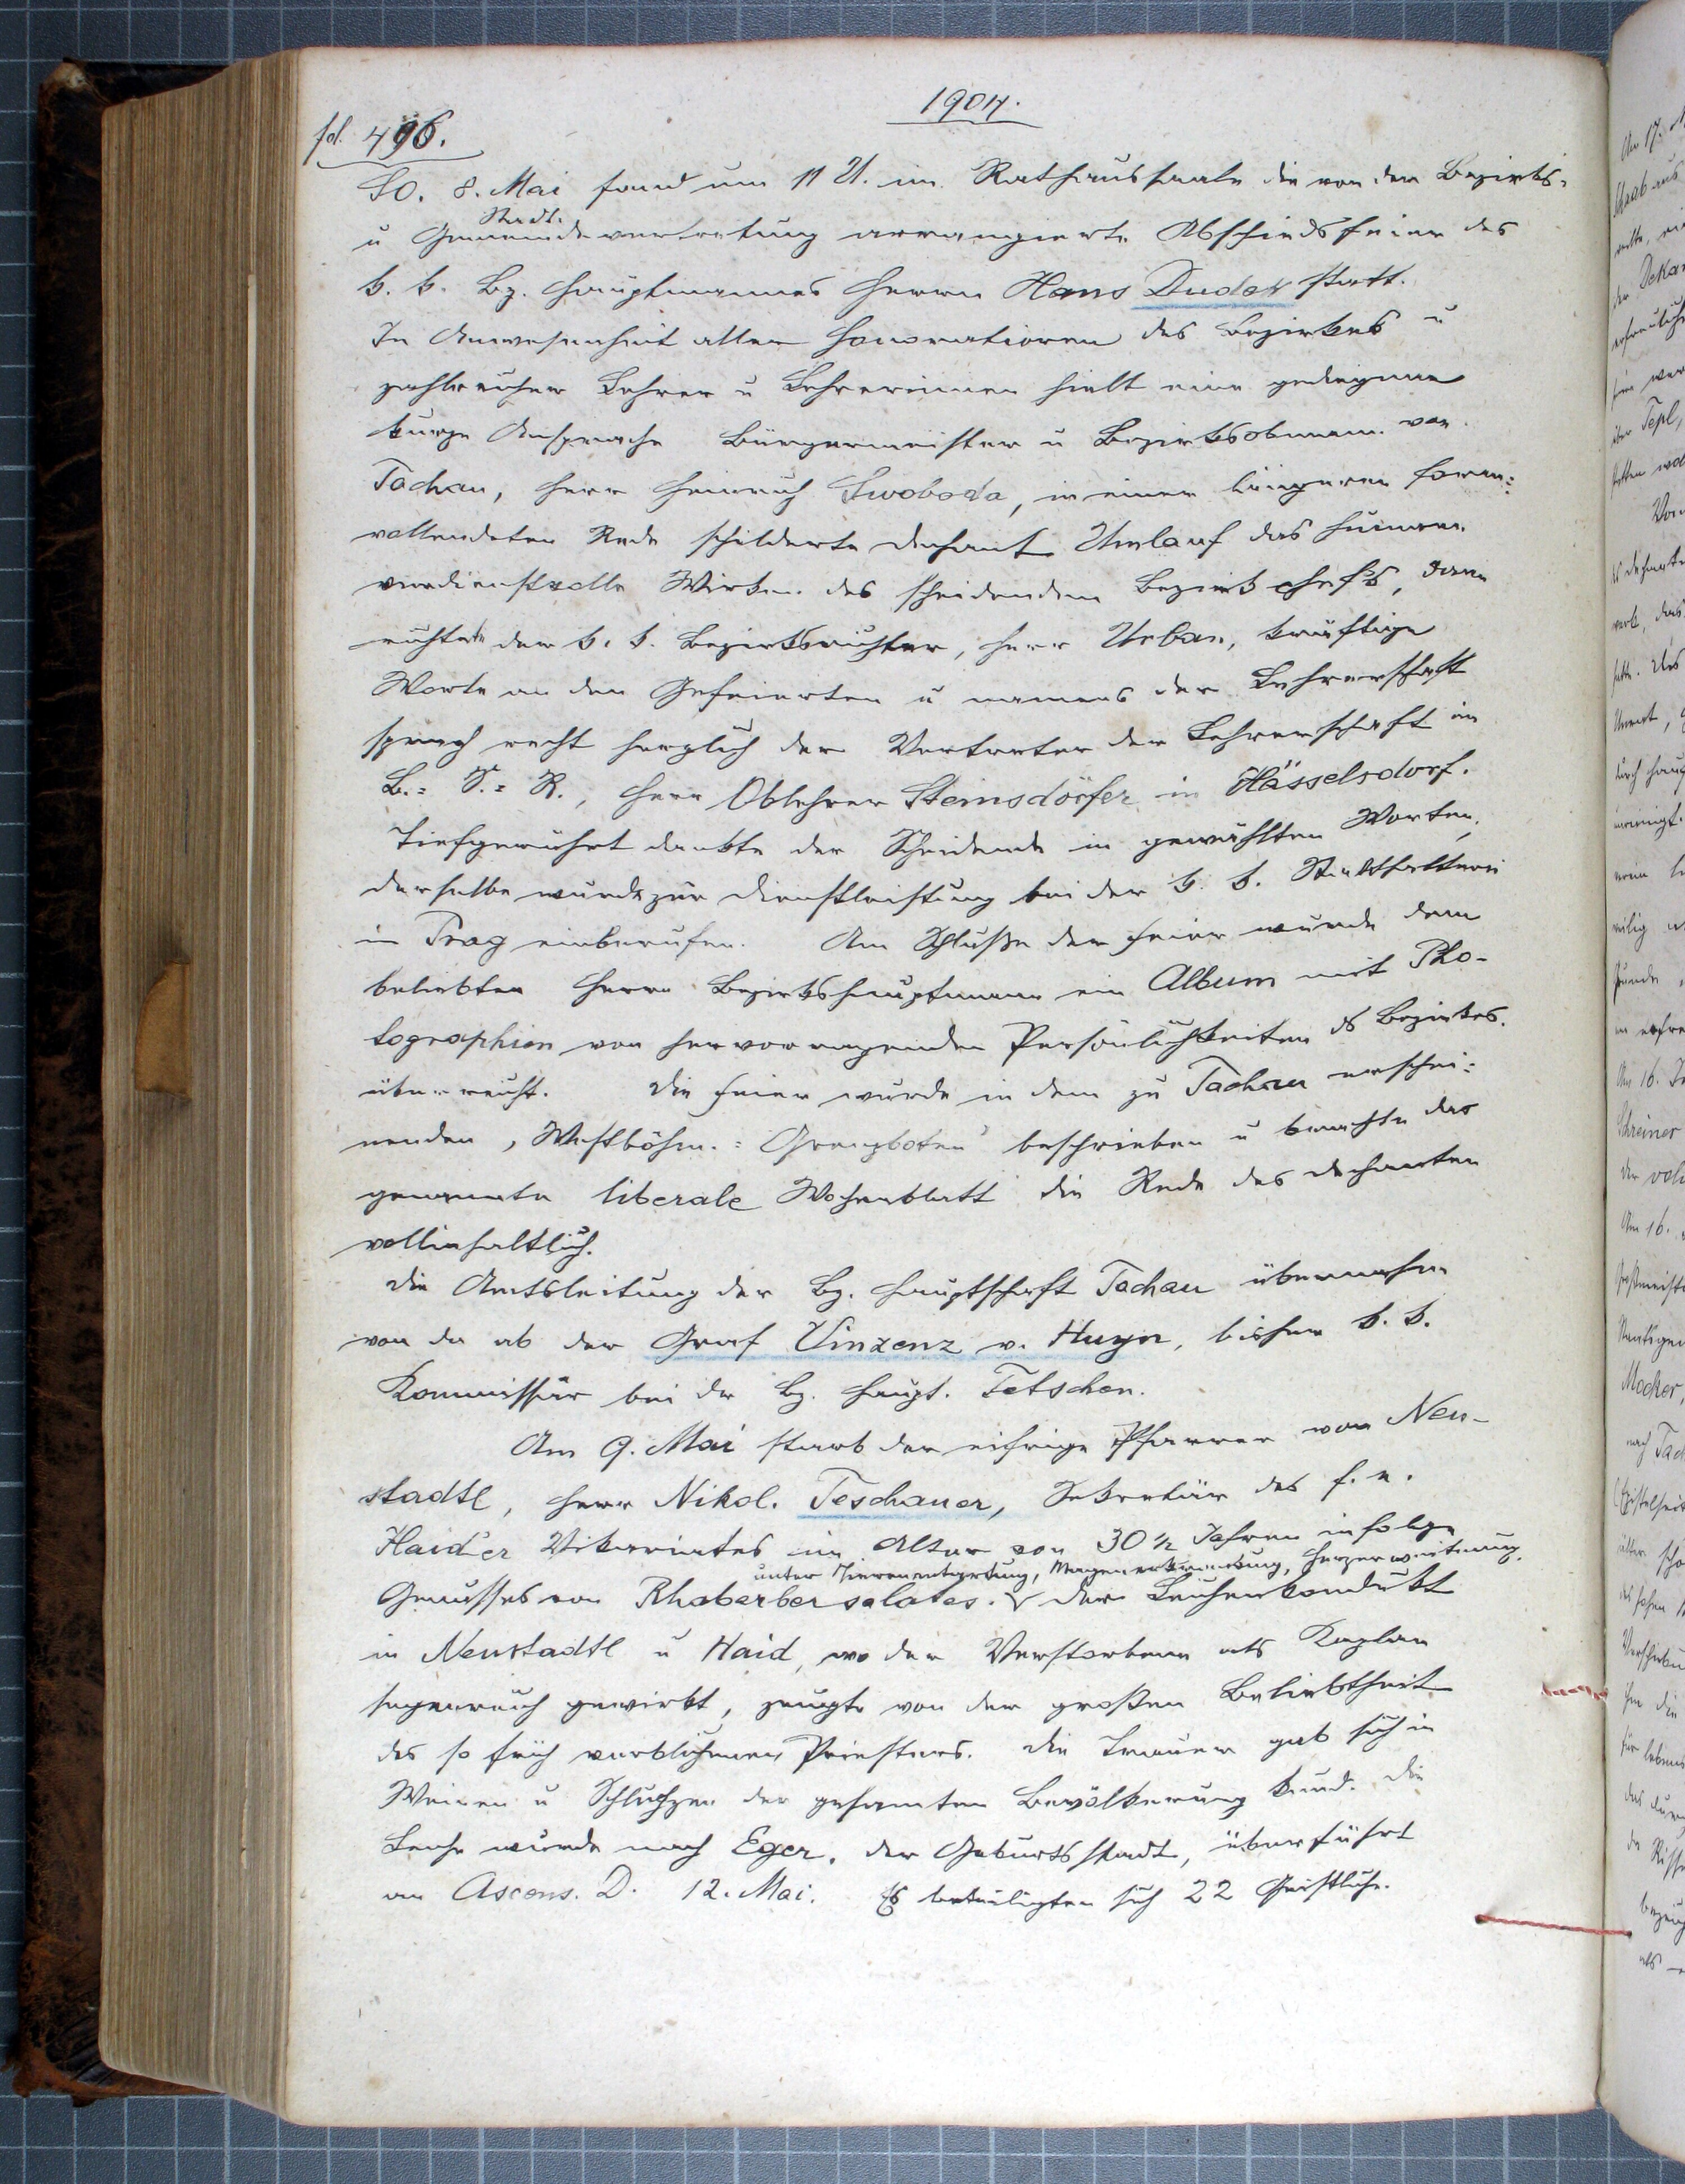 1904.
fol. 496.
So. 8. Mai fand um 11 U. im Rathaussaale die von der Bezirks-
Stadt-
u Gemeindevertretung arrangierte Abschiedsfeier des
k. k. Bz. Hauptmannes Herrn Hans Dudek statt.
In Anwesenheit aller Honoratioren des Bezirkes u
zahlreicher Lehrer u Lehrerinnen hielt eine gediegene
kurze Ansprache Bürgermeister u Bezirksobmann von
Tachau, Herr Heinrich Swoboda, in einer längeren form-
vollendeten Rede schilderte Dechant Umlauf das humane
verdienstvolle Wirken des scheidenden Bezirkschefs, dann
richtete der k. k. Bezirksrichter, Herr Urban, kräftige
Worte an den Gefeierten u namens der Lehrerschaft
sprach recht herzlich der Vertreter der Lehrerschaft im
B.- S.- R., Herr Oblehrer Steinsdörfer in Hässelsdorf.
Tiefgerührt dankte der Scheidende in gewählten Worten,
derselbe wurde zur Dienstleistung bei der k. k. Statthalterei
in Prag einberufen. Am Schluße der Feier wurde dem
beliebten Herrn Bezirkshauptmann ein Album mit Pho-
tographien von hervorragenden Persönlichkeiten ds Bezirkes
überreicht. Die Feier wurde in dem zu Tachau erschei-
nenden „Westböhm.- Grenzboten" beschrieben u brachte das
genannte liberale Wochenblatt die Rede des Dechanten
vollinhaltlich.
Die Amtsleitung der Bz. Hauptschaft Tachau übernahm
von da ab der Graf Vinzenz v. Huyn, bisher k. k.
Kommissär bei der Bz. Haupt. Tetschen.
Am 9. Mai starb der eifrige Pfarrer von Neu-
stadtl, Herr Nikol. Teschauer, Sekretär des f. e.
Haider Vikariates im Alter von 30 ½ Jahren infolge
unter Nierenentartung, Magenerkrankung, Herzerweiterung.
Genusses von Rhabarbersalates. Der Leichenkondukt
in Neustadtl u Haid, wo der Verstorbene als Kaplan
segensreich gewirkt, zeugte von der großen Beliebtheit
des so früh verblichenen Priesters. Die Trauer gab sich in
Weinen u Schluchzen der gesamten Bevölkerung kund. Die
Leiche wurde nach Eger, der Geburtsstadt, überführt
an Ascens. D. 12. Mai. Es beteiligten sich 22 Geistliche.